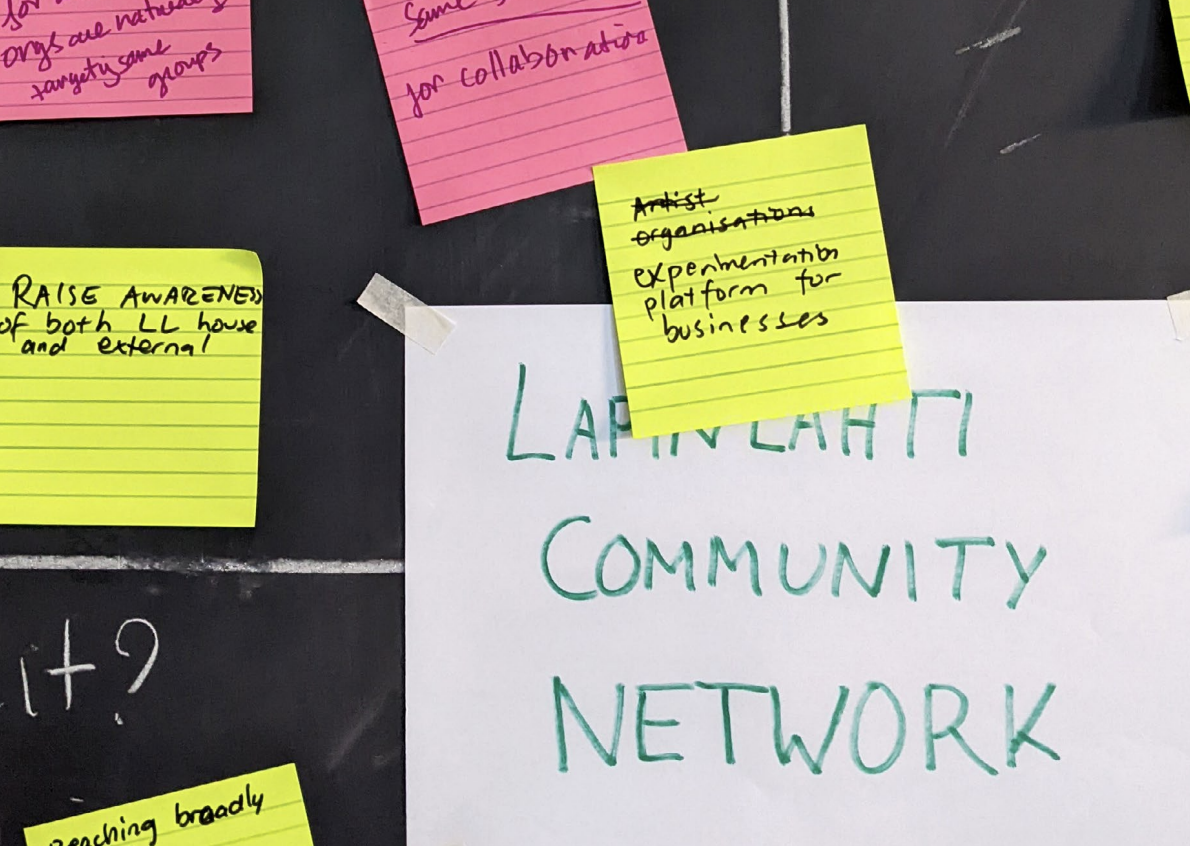 for
orgs are naturally
targety same
groups
Same
for collaboration
Artist
organisations
experimentation
platform for
businesses
RAISE AWARENESS
of both LL house
and external
LAPINLAHTI
COMMUNITY
NETWORK
it?
Reaching broadly